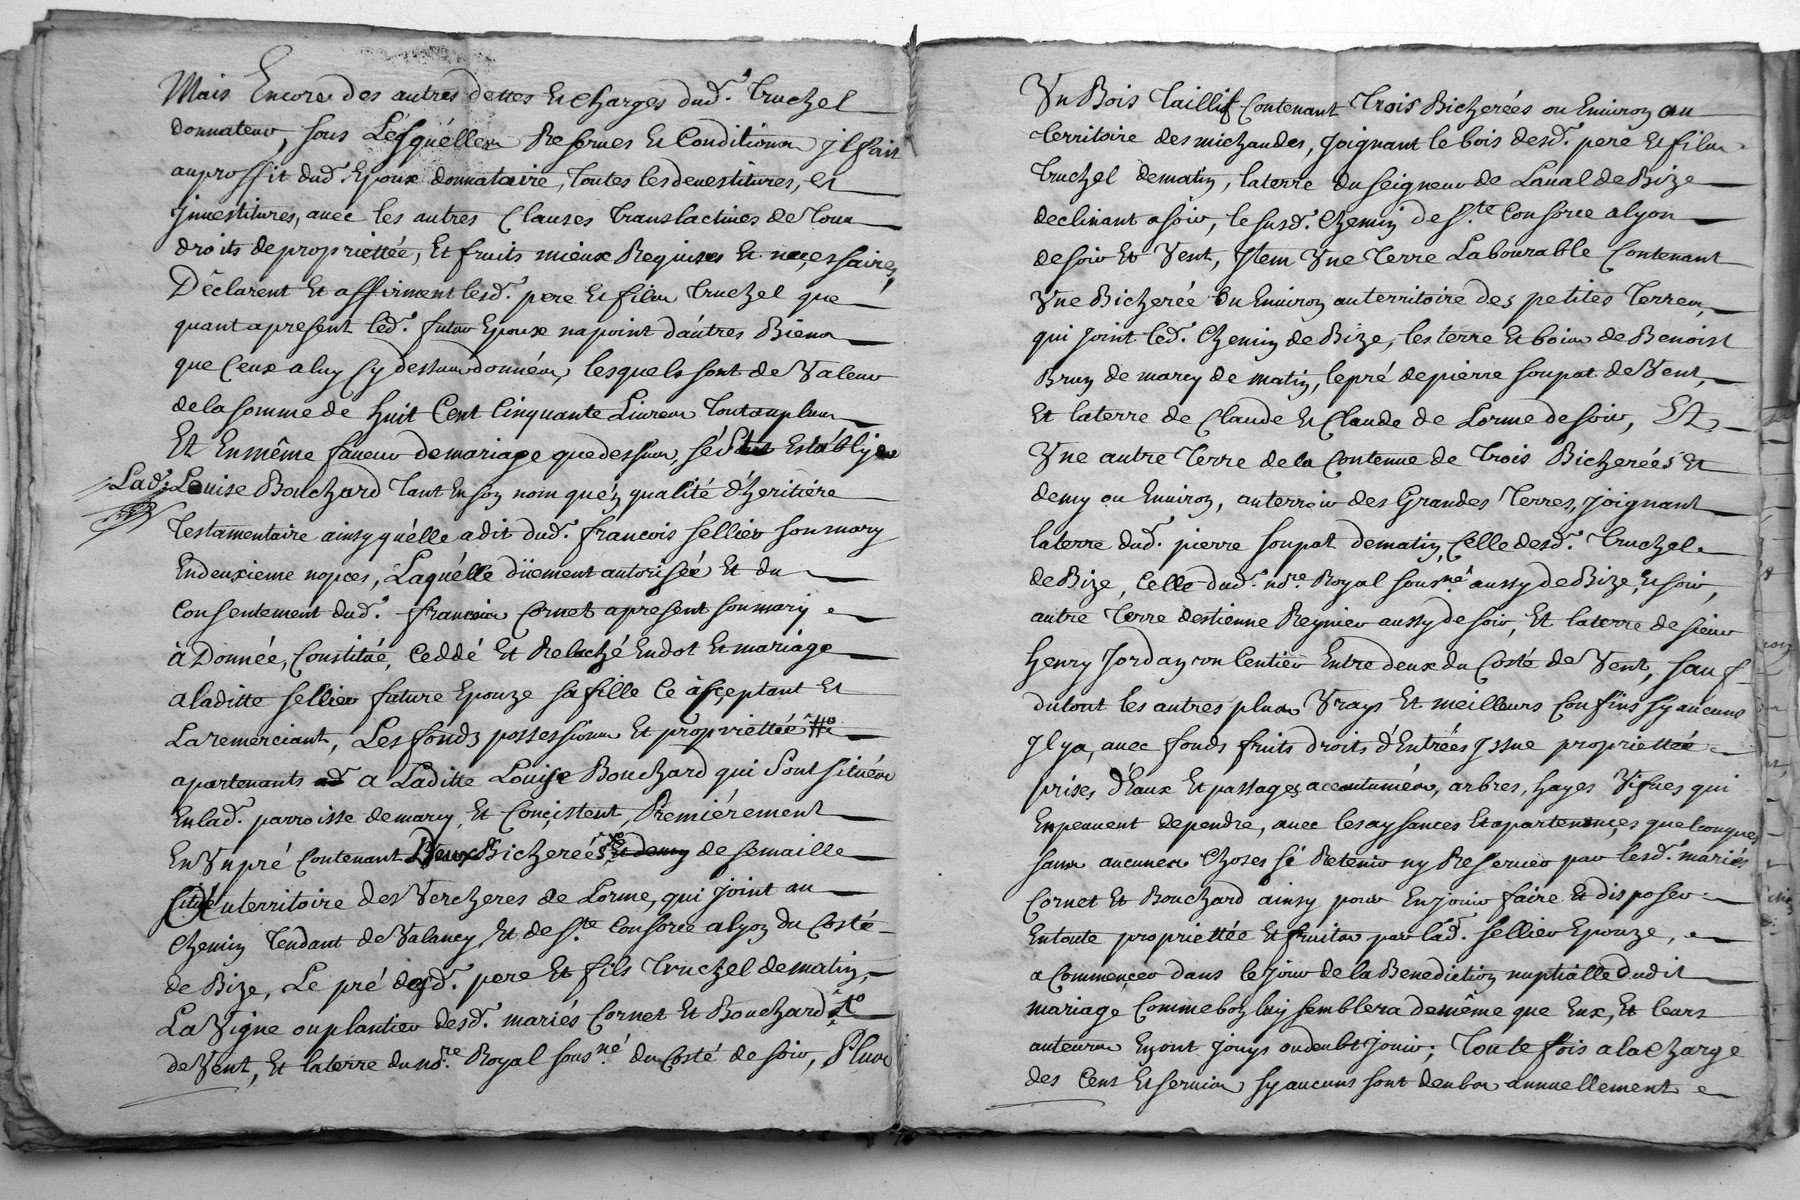 Mais Encore des autres dettes Et Charges dud.t Truchel
donnateur, sous Lesquélles Reserves Et Conditions Jl fait
auproffit dud. Epoux donnataire, Toutes les devestitures, et
Jnvestitures, avec les autres Clauses Translactives de Tous
droits de propriettée, Et fruits mieux Requises Et neçessaires,
Déclarent Et affirment lesd.s pere Et fils Truchel que
quant apresent led.t futur Epoux napoint dáutres Biens
que Ceux aluy Cy dessus donnés, lesquels sont de Valeur
delasomme de huit Cent Cinquante Livres Toutauplus
Et Enmême faveur demariage que dessus, sést Establye
Lad.e Louise Bouchard Tant En son nom quén qualité dheritiére
Testamentaire ainsy quélle adit dud.t francois sellier sonmary
Endeuxieme nopces, Laquélle düement autorisée Et du
Consentement dud.t francois Cornet apresent sonmary
à Donnée, Constitué, Ceddé Et Relaché Endot Et mariage
aladitte sellier future Epouze sa fille Ce açceptant Et
Laremerciant, Les fonds possessions Et propriettée
apartenants a Laditte Louise Bouchard qui sont situés
Enlad.e parroisse demarcy, Et Conçistent, Premiérement
En Vn pré Contenant Deux Bicherées Et demy de semaille
situé auterritoire des Vercheres de Lorme, qui joint au
Chemin Tendant de Valancy Et de S.te Consorce alyon du Costé
de Bize, Le pré desd.s pere Et fils Truchel dematin,
La Vigne ouplantier desd.s mariés Cornet Et Bouchard
de Vent, Et laterre du no.re Royal sous.né du Costé de soir, Plus
Vn Bois Taillif Contenant Trois Bicherées ou Environ au
Territoire des michaudes, Joignant le bois desd.s pere Et fils
Truchel dematin, laterre du seigneur de Laval de Bize
declinant asoir, le susd.t Chemin de S.te Consorce alyon
de soir Et Vent, Jtem Vne Terre Labourable Contenant
Vne Bicherée Ou Environ auterritoire des petites Terres,
qui joint led.t Chemin de Bize, les terre Et bois de Benoist
Brun de marcy de matin, lepré depierre soupat de Vent,
Et laterre de Claude Et Claude de Lorme de soir, Et
Vne autre Terre dela Contenue de Trois Bicherées Et
demy ou Environ, auterroir des Grandes Terres, joignant
laterre dud.t pierre soupat dematin, Celle desd.s Truchel
de Bize, Celle dud.t no.re Royal sous.né aussy de Bize, Et soir,
autre Terre destienne Reynier aussy de soir, Et laterre de sieur
henry Jordan un Centier Entre deux du Costé de Vent, sauf
dutout les autres plus Vrays Et meilleurs Confins sy aucuns
Jl ya, avec fonds fruits droits d'Entrées Jssue propriettée
prises d'Eaux Et passages accoutumés, arbres, hayes Vifves qui
Enpeuvent dependre, avec lesaysances Et apartenançes quelconques
sans aucunes Choses sé Retenir ny Reserver par lesd.s mariés
Cornet Et Bouchard ainsy pour Enjouir faire Et disposer
Entoute propriettée Et fruits par lad.e sellier Epouze,
a Commençer dans lejour de la Benediction nuptialle dudit
mariage Comme bon luy semblera demême que Eux, Et leurs
auteurs Enont jouys oudeubt jouir; Toutefois ala Charge
des Cens Et servis sy aucuns sont deubs annuellement